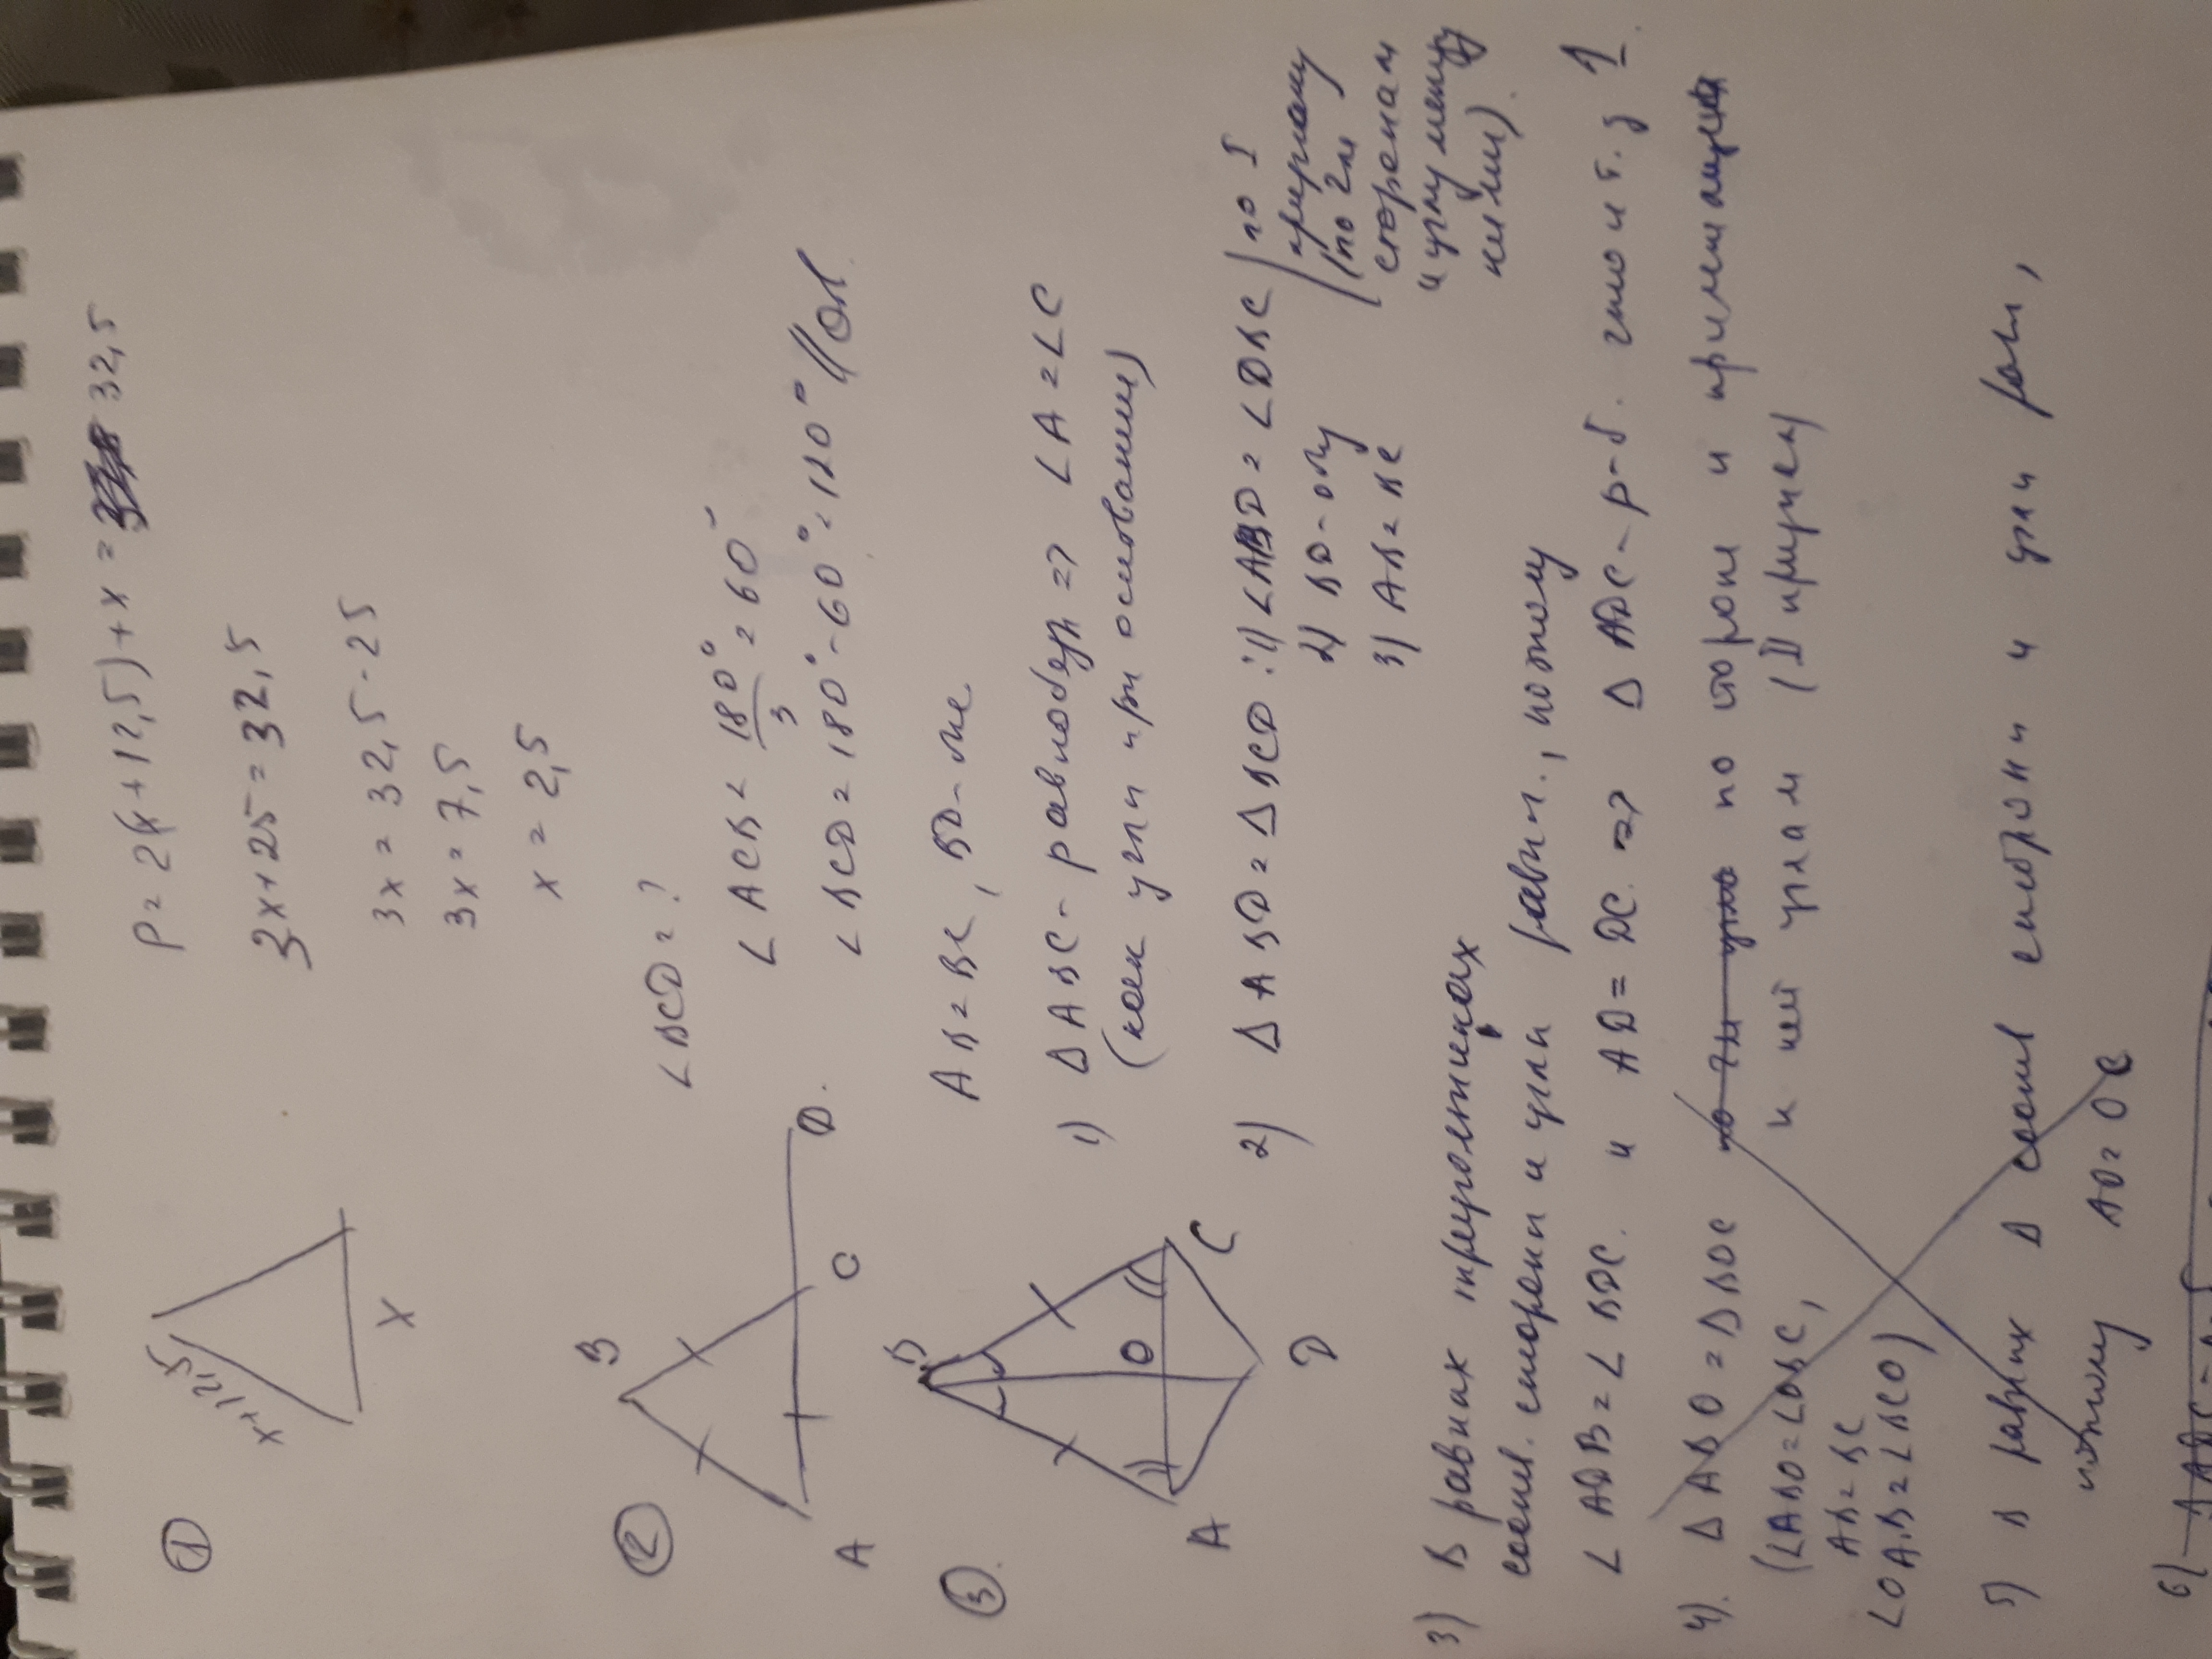 ①
x+12,5
x
P = 2(x+12,5)+x = 32,5
3x+25=32,5
3x = 32,5-25
3x = 7,5
x = 2,5
②
B
A
C
D.
∠BCD = ?
∠ACB = 180°/3 = 60°
∠BCD = 180°-60° = 120°
③.
B
O
A
C
D
AB = BC, BD-
1) Δ ABC - равнобедр => ∠A = ∠C
(как углы при основании)
2) Δ ABD = Δ BCD : 1) ∠ABD = ∠DBC
2) BD-общ
3) AB = BC
по I
признаку
(по 2м
сторонам
и углу между
ними).
3) В равных треугольниках
соотв. стороны и углы равны., потому
∠ADB = ∠BDC. и AD = DC. => Δ ADC - р-б. что и т. д
4). Δ ABO = Δ BOC по стороне и прилежащим
(∠ABO = ∠OBC, к ней углам (II признак)
AB = BC
∠OAB = ∠BCO)
5) В равных Δ соотв стороны и углы равны,
потому AO = OC
6)